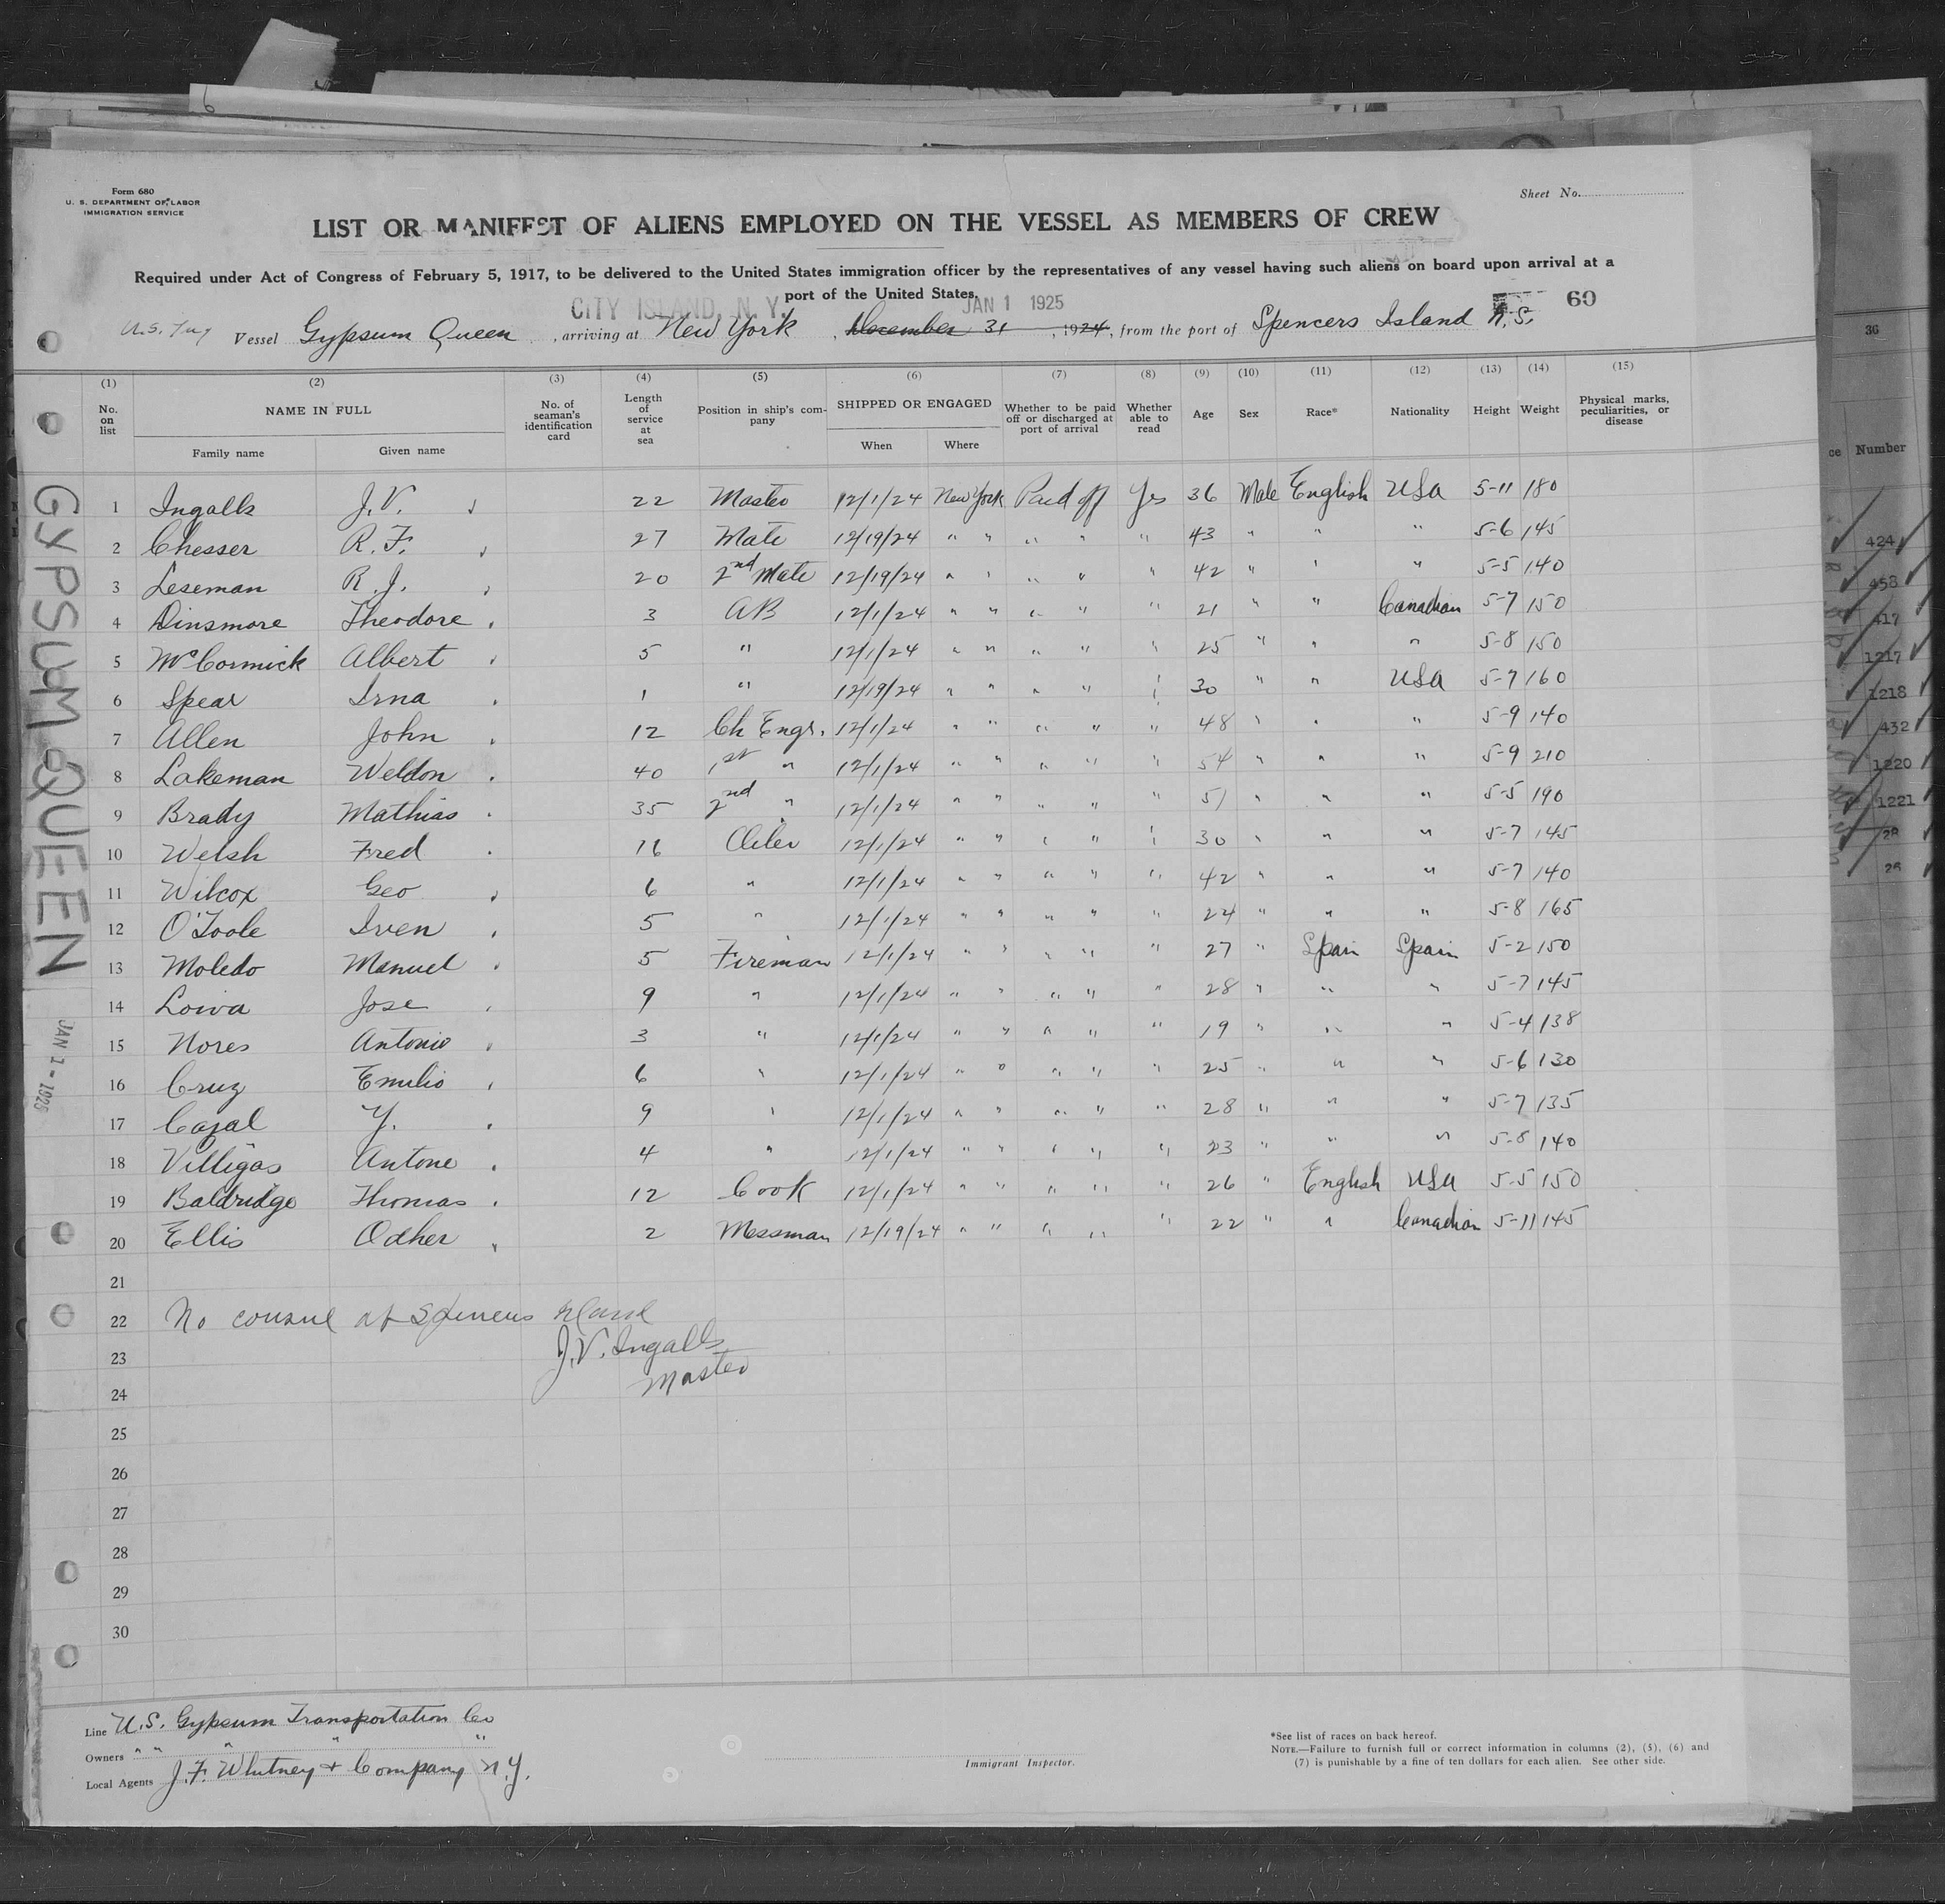 Form 680
U. S. DEPARTMENT OF LABOR
IMMIGRATION SERVICE
Sheet No.
LIST OR MANIFEST OF ALIENS EMPLOYED ON THE VESSEL AS MEMBERS OF CREW
Required under Act of Congress of February 5, 1917, to be delivered to the United States immigration officer by the representatives of any vessel having such aliens on board upon arrival at a
port of the United States.
CITY ISLAND, N. Y. JAN 1 1925 60
U.S. Tug Vessel Gypsum Queen, arriving at New York, December 31, 1924, from the port of Spencers Island N.S.
(1) (2) (3) (4) (5) (6) (7) (8) (9) (10) (11) (12) (13) (14) (15)
No. on list NAME IN FULL No. of seaman's identification card Length of service at sea Position in ship's company SHIPPED OR ENGAGED Whether to be paid off or discharged at port of arrival Whether able to read Age Sex Race* Nationality Height Weight Physical marks, peculiarities, or disease
Family name Given name When Where
1 Ingalls J.V. 22 Master 12/1/24 New York Paid off Yes 36 Male English USA 5-11 180
2 Chesser R.F. 27 Mate 12/19/24 " " " " " 43 " " " 5-6 145
3 Leseman R.J. 20 2nd Mate 12/19/24 " " " " " 42 " " " 5-5 140
4 Dinsmore Theodore 3 AB 12/1/24 " " " " " 21 " " Canadian 5-7 150
5 McCormick Albert 5 " 12/1/24 " " " " " 25 " " " 5-8 150
6 Spear Irna 1 " 12/19/24 " " " " " 30 " " USA 5-7 160
7 Allen John 12 Ch Engr. 12/1/24 " " " " " 48 " " " 5-9 140
8 Lakeman Weldon 40 1st " 12/1/24 " " " " " 54 " " " 5-9 210
9 Brady Mathias 35 2nd " 12/1/24 " " " " " 51 " " " 5-5 190
10 Welsh Fred 16 Oiler 12/1/24 " " " " " 30 " " " 5-7 145
11 Wilcox Geo 6 " 12/1/24 " " " " " 42 " " " 5-7 140
12 O'Toole Iven 5 " 12/1/24 " " " " " 24 " " " 5-8 165
13 Moledo Manuel 5 Fireman 12/1/24 " " " " " 27 " Spain Spain 5-2 150
14 Loiva Jose 9 " 12/1/24 " " " " " 28 " " " 5-7 145
15 Nores Antonio 3 " 12/1/24 " " " " " 19 " " " 5-4 138
16 Cruz Emilio 6 " 12/1/24 " " " " " 25 " " " 5-6 130
17 Cazal Y. 9 " 12/1/24 " " " " " 28 " " " 5-7 135
18 Villigas Antone 4 " 12/1/24 " " " " " 23 " " " 5-8 140
19 Baldridge Thomas 12 Cook 12/1/24 " " " " " 26 " English USA 5-5 150
20 Ellis Odher 2 Messman 12/19/24 " " " " " 22 " " Canadian 5-11 145
21
22 No consul at Spencers Island
23 J.V. Ingalls
24 Master
25
26
27
28
29
30
GYPSUM QUEEN
JAN 1 - 1925
Line U.S. Gypsum Transportation Co
Owners " " " " "
Local Agents J.F. Whitney & Company N.Y.
Immigrant Inspector.
*See list of races on back hereof.
NOTE.—Failure to furnish full or correct information in columns (2), (5), (6) and
(7) is punishable by a fine of ten dollars for each alien. See other side.
36
ce Number
424
458
417
1217
1218
432
1220
1221
28
26